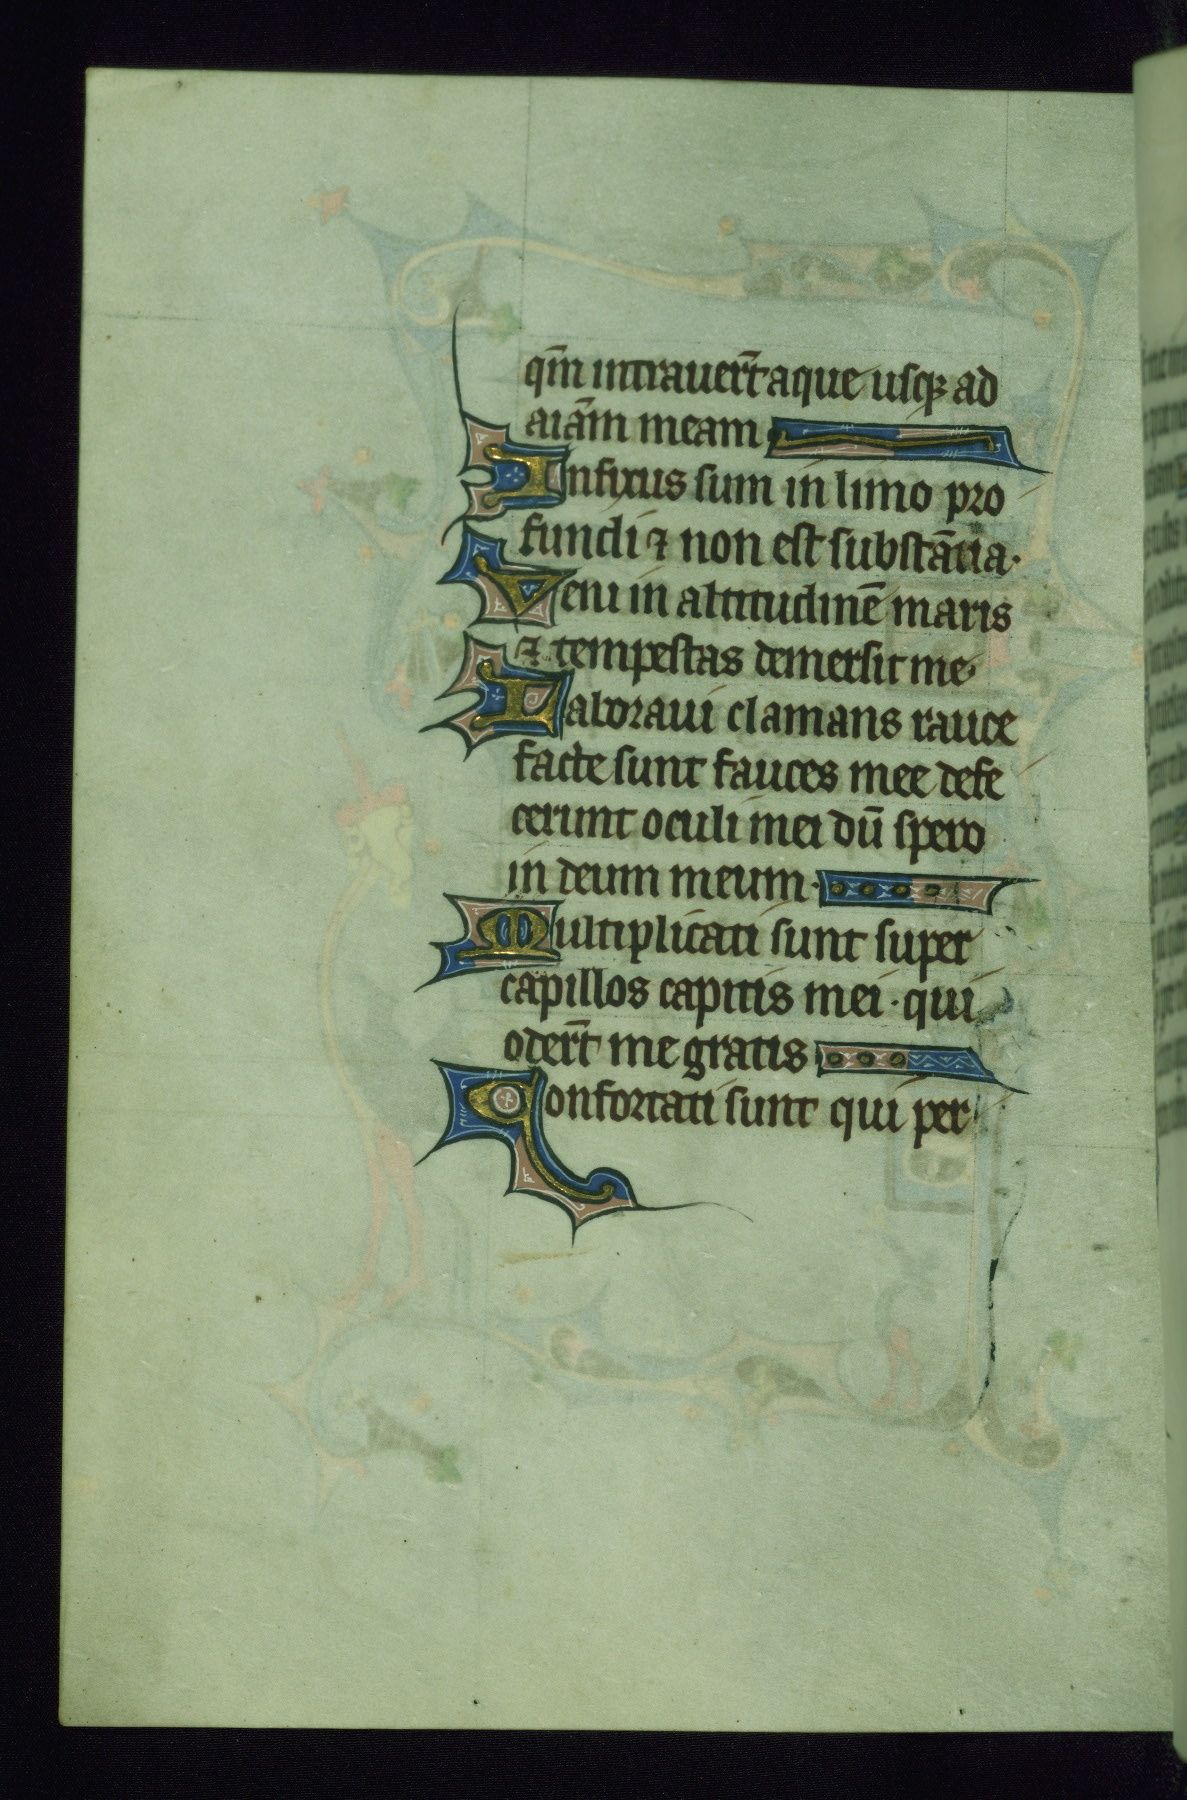 qm̄ intrauert̄ aque usqꝫ ad
aiām meam
Infixus sum in limo pro
fundi ⁊ non est substātia·
Veni in altitudinē maris
⁊ tempestas demersit me·
Laboraui clamans rauce
facte sunt fauces mee defe
cerunt oculi mei dū spero
in deum meum·
Multiplicati sunt super
capillos capitis mei· qui
odert̄ me gratis
Confortati sunt qui per